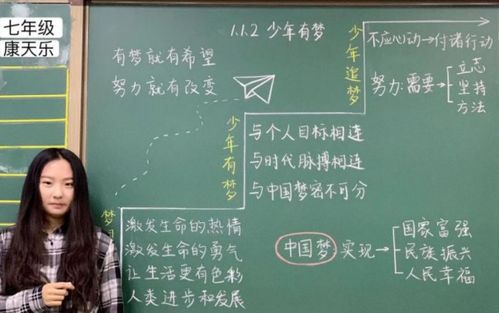 七年级
康天乐
1.1.2 少年有梦
有梦就有希望
努力就有改变
少年追梦
不应心动→付诸行动
努力:需要→
立志
坚持
方法
少年有梦
与个人目标相连
与时代脉搏相连
与中国梦密不可分
梦
激发生命的热情
激发生命的勇气
让生活更有色彩
人类进步和发展
中国梦:实现→
国家富强
民族振兴
人民幸福